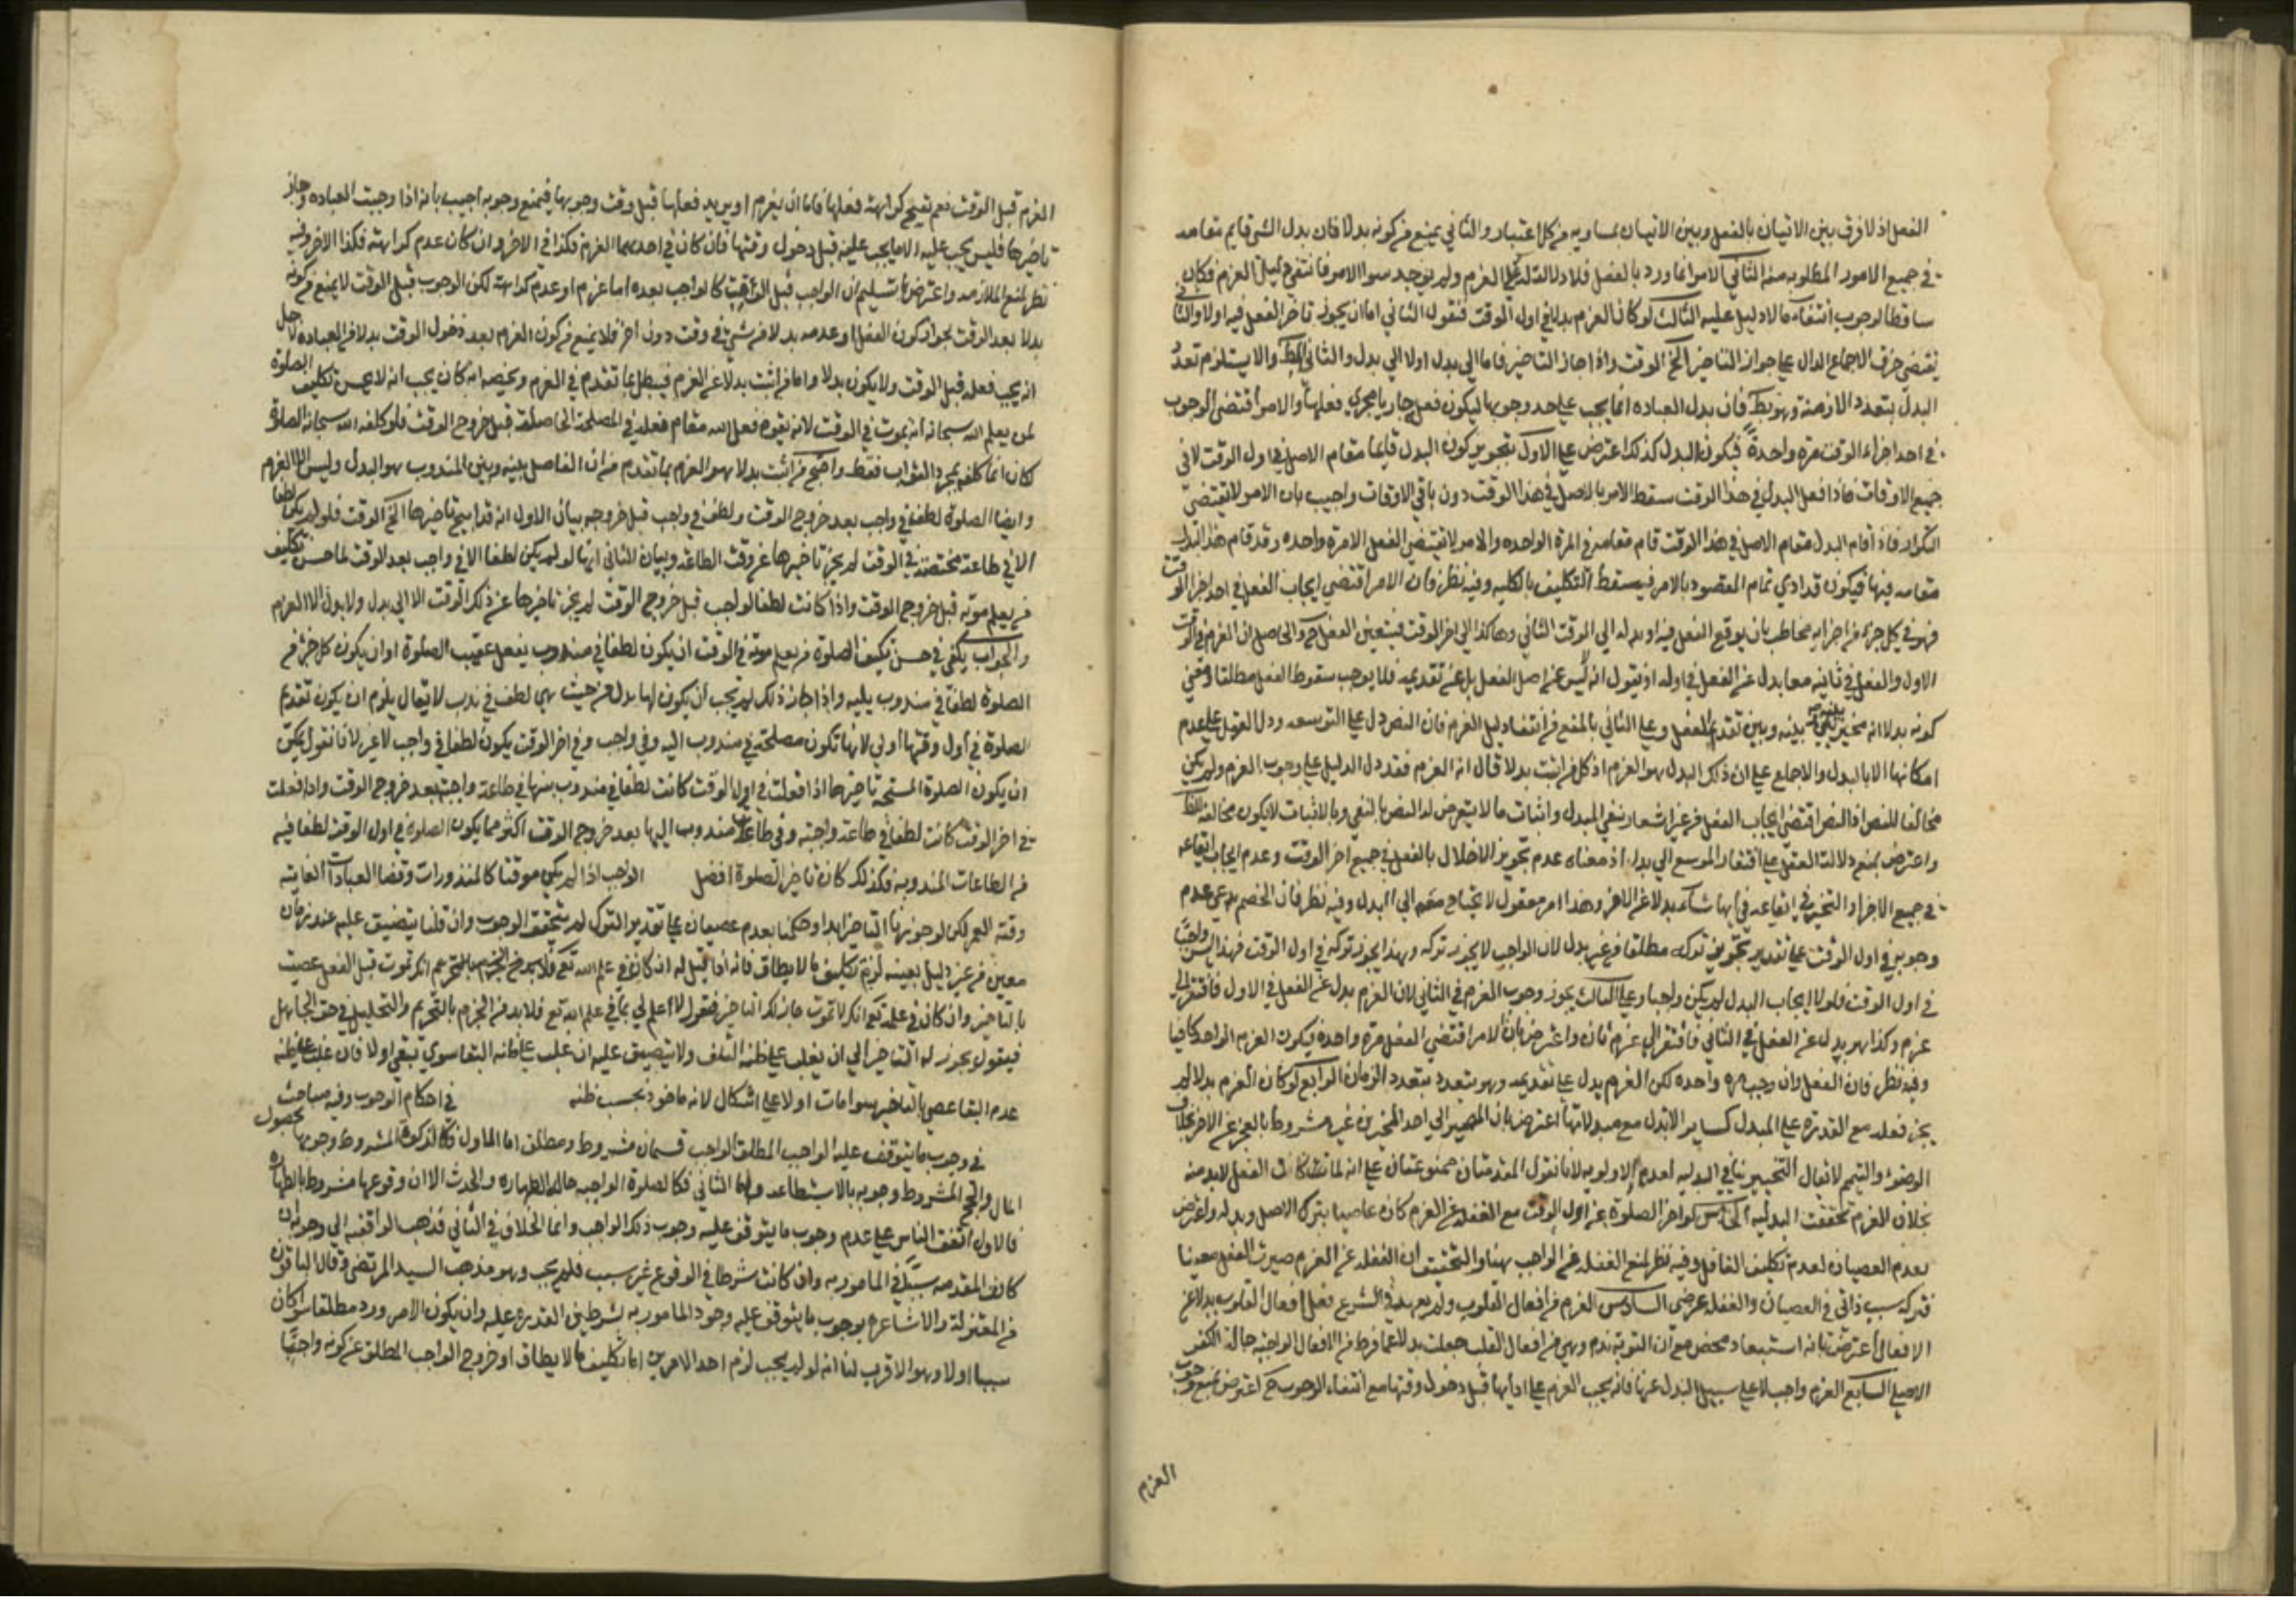 الفعل اذ لا فرق بين الاتيان بالفعل وبين الاتيان بمساويه من كل اعتبار والثاني يمنع من كونه بدلا فان بدل الشي قايم مقامه
في جميع الامور المطلوبه منه الثاني الامر انما ورد بالفعل فلا دلالة له على العزم ولم يوجد سوا الامر فانتفى دليل العزم فكان
ساقطا لوجوب انتفاء ما لا دليل عليه الثالث لو كان العزم بدلا في اول الوقت فنقول الثاني اما ان يجوز تاخر الفعل فيه اولا والثاني
يقتضي خرق الاجماع الدال على جواز التاخير الى اخر الوقت واذا جاز التاخير فاما الى بدل اولا الى بدل والثاني والا يستلزم تعدد
البدل بتعدد الازمنة وهو بط فان بدل العباده انما يجب على حد وجوبها ليكون فعله جاريا مجرى فعلها والامر اقتضى الوجوب
في احد اجزاء الوقت مرة واحدة فيكون البدل كذلك اعترض على الاول بتجويز كون البدل قايما مقام الاصل في اول الوقت لا في
جميع الاوقات فاذا فعل البدل في هذا الوقت سقط الامر بالاصل في هذا الوقت دون باقي الاوقات واجيب بان الامر لا يقتضي
التكرار فاذا قام البدل مقام الاصل في هذا الوقت قام مقامه في المرة الواحده والامر لا يقتضي الفعل الا مرة واحده وقد قام هذا البدل
مقامه فيها فيكون قد ادي تمام المقصود بالامر فيسقط التكليف بالكليه وفيه نظر فان الامر اقتضى ايجاب الفعل في احد اجزا الوقت
فهو في كل جزء من اجزايه مخاطب بان يوقع الفعل فيه او بدله الى الوقت الثاني وهكذا الى اخر الوقت فيتعين الفعل ح والحاصل ان العزم في الوقت
الاول والفعل في ثانيه معا بدل عن الفعل في اوله او نقول انه ليس عن اصل الفعل بل عن تقديمه فلا يوجب سقوط الفعل مطلقا ومعنى
كونه بدلا انه مخير بينه وبين تقديم الفعل وعلى الثاني بالمنع من انتفاء دليل العزم فان النص دل على التوسعه ودل العقل على عدم
امكانها الا بالبدل والاجماع على ان ذلك البدل هو العزم اذ كل من اثبت بدلا قال انه العزم فقد دل الدليل على وجوب العزم ولم يكن
مخالفا للنص اذ النص اقتضى ايجاب الفعل من غير اشعار بنفي البدل واثبات ما لا يتعرض له النص بالنفي وبالاثبات لا يكون مخالفة
واعترض بمنع دلالة العقل على افتقار الموسع الى بدل اذ معناه عدم تجويز الاخلال بالفعل في جميع اخر الوقت وعدم ايجاب ايقاعه
في جميع الاجزاء والتخير في ايقاعه في ايها شاء بدلا عن الاخر وهذا امر معقول لا يحتاج معه الى البدل وفيه نظر فان الخصم يدعي عدم
وجوبه في اول الوقت على تقدير تجويز تركه مطلقا من غير بدل لان الواجب لا يجوز تركه وهذا يجوز تركه في اول الوقت فهذا ليس واجبا
في اول الوقت فلولا ايجاب البدل لم يكن واجبا وعلى الثالث يجوز وجوب العزم في الثاني لان العزم بدل عن الفعل في الاول فافتقر الى
عزم وكذا هو بدل عن الفعل في الثاني فافتقر الى عزم ثان واعترض بان الامر اقتضى الفعل مرة واحدة فيكون العزم الواحد كافيا
وفيه نظر فان الفعل وان وجب مره واحده لكن العزم بدل على تقديمه وهو يتعدد بتعدد الزمان الرابع لو كان العزم بدلا لم
يجز فعله مع القدرة على المبدل كساير الابدل مع مبدلاتها اعترض بان المصير الى احد المخيرين غير مشروط بالعجز عن الاخر بخلاف
الوضوء والتيمم لا يقال التخيير ينافي البدليه لعدم الاولويه لانا نقول المقدمتان ممنوعتان على انه لما كان الفعل لا بد منه
بخلاف العزم تحققت البدليه الخامس لو اخر الصلوة عن اول الوقت مع الغفلة عن العزم كان عاصيا بترك الاصل وبدله واعترض
بعدم العصيان لعدم تكليف الغافل وفيه نظر لمنع الغفله عن الواجب هنا والتحقيق ان الغفله عن العزم صيرت الفعل معينا
فتركه سبب ذاتي في العصيان والغفله عرضي السادس العزم من افعال القلوب ولم يعهد في الشرع فعل افعال القلوب بدلا عن
الافعال اعترض بانه استبعاد محض مع ان التوبة ندم وهي من افعال القلب جعلت بدلا عما فرط من الافعال الواجبه حالة الكفر
الاصلي السابع العزم واجب لا على سبيل البدل عنها فانه يجب العزم على ادايها قبل دخول وقتها مع انتفاء الوجوب ح اعترض بمنع وجوب
العزم
العزم قبل الوقت نعم يقبح كراهته فعلها فاما ان يعزم او يريد فعلها قبل وقت وجوبها فيمنع وجوبه اجيب بانه اذا وجبت العباده وجاز
تاخيرها فليس يجب عليه الا ما يجب عليه قبل دخول وقتها فان كان في احدهما العزم فكذا في الاخر وان كان عدم كراهته فكذا الاخر وفيه
نظر لمنع الملازمه واعترض بتسليم ان الواجب قبل الوقت كالواجب بعده اما عزم او عدم كراهة لكن الوجوب قبل الوقت لا يمنع من كونه
بدلا بعد الوقت بجواز كون الفعل او عدمه بدلا من شي في وقت دون اخر فلا يمنع من كون العزم بعد دخول الوقت بدلا من العباده لاجل
انه يجب فعله قبل الوقت ولا يكون بدلا واما من اثبت بدلا غير العزم فيبطل بما تقدم في العزم ويخصه انه كان يجب انه لا يحسن تكليف الصلوة
لمن يعلم الله سبحانه انه يموت في الوقت لانه يقوم فعل الله مقام فعله في المصلحة الحاصلة قبل خروج الوقت فلو كلفه الله سبحانه الصلوة
لكان انما كلفه لمجرد الثواب فقط واحتج من اثبت بدلا هو العزم بما تقدم من ان الفاصل بينه وبين المندوب هو البدل وليس الا العزم
وايضا الصلوة لطف في واجب بعد خروج الوقت ولطف في واجب قبل خروجه بيان الاول انه قد ابيح تاخيرها الى اخر الوقت فلو لم يكن لطفا
الا في طاعة مختصة في الوقت لم يجز تاخيرها عن وقت الطاعة وبيان الثاني انها لو لم يكن لطفا الا في واجب بعد الوقت لما حسن تكليف
من يعلم موته قبل خروج الوقت واذا كانت لطفا لواجب قبل خروج الوقت لم يجز تاخيرها عن ذلك الوقت الا الى بدل ولا بدل الا العزم
والجواب يكفي في حسن تكليف الصلوة من يعلم موته في الوقت ان يكون لطفا في مندوب يفعل عقيب الصلوة او ان يكون كل جزء من
الصلوة لطفا في مندوب يليه واذا جاز ذلك لم يجب ان يكون لها بدل من حيث هي لطف في ندب لا يقال يلزم ان يكون تقديم
الصلوة في اول وقتها اولى لانها تكون مصلحة في مندوب اليه وفي واجب وفي اخر الوقت يكون لطفا في واجب لا غير لانا نقول يمكن
ان يكون الصلوة المستحبة تاخيرها اذا فعلت في اول الوقت كانت لطفا في مندوب منها في طاعة واجبة بعد خروج الوقت واذا فعلت
في اخر الوقت كانت لطفا في طاعة واجبة وفي طاعات مندوب اليها بعد خروج الوقت اكثر مما يكون الصلوة في اول الوقت لطفا فيه
من الطاعات المندوبة فكذلك كان تاخير الصلوة افضل الواجب اذا لم يكن موقتا كالمنذورات وقضا العبادات الفايته
وقته العمر لكن لو جوزنا التاخير ابدا وحكمنا بعدم عصيان على تقدير الترك لم يتحقق الوجوب وان قلنا يتضيق عليه عند زمان
معين من غير دليل بعينه لزم تكليف ما لا يطاق فانه اذا قيل له ان كان في علم الله تع انك تموت قبل الفعل عصيت
بالتاخير وان كان في علمه تع انك لا تموت جاز لك التاخير فيقول لا اعلم لي بما في علم الله تع فلا بد من الجزم بالتحريم والتحليل في حق الجاهل
فيقول يجوز له التاخير الى ان يغلب على ظنه التلف ولا يتضيق عليه ان غلب على ظنه البقا سوى بقي اولا فان غلب على ظنه
عدم البقا عصى بالتاخير سوا مات اولا على اشكال لانه ماخوذ بحسب ظنه في احكام الوجوب وفيه مباحث
في وجوب ما يتوقف عليه الواجب المطلق الواجب قسمان مشروط ومطلق اما الاول فكالزكوة المشروط وجوبها بحصول
المال والحج المشروط وجوبه بالاستطاعه واما الثاني فكالصلوة الواجبه حالة الطهاره والحدث الا ان وقوعها مشروط بالطهاره
فالاول اتفق الناس على عدم وجوب ما يتوقف عليه وجوب ذلك الواجب وانما الخلاف في الثاني فذهب الواقفيه الى وجوبه ان
كانت المقدمه سببا في المامور به وان كانت شرطا في الوقوع غير سبب فلم يجب وهو مذهب السيد المرتضى وقال الباقون
من المعتزلة والاشاعره بوجوب ما يتوقف عليه وجود المامور به بشرطين القدره عليه وان يكون الامر ورد مطلقا سوا كان
سببا اولا وهو الاقرب لنا انه لو لم يجب لزم احد الامرين اما تكليف ما لا يطاق او خروج الواجب المطلق عن كونه واجبا